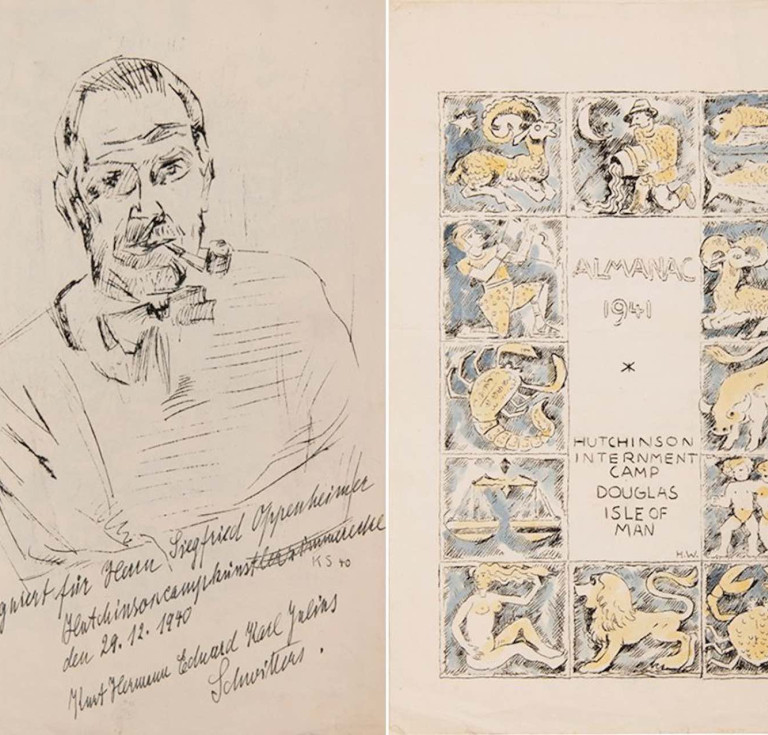 für Herrn Siegfried Oppenheimer
Hutchinsoncampkünstler
KS 40
den 29. 12. 1940
Kurt Hermann Eduard Karl Julius
Schwitters.
ALMANAC
1941
*
HUTCHINSON
INTERNMENT
CAMP
DOUGLAS
ISLE OF
MAN
H.W.